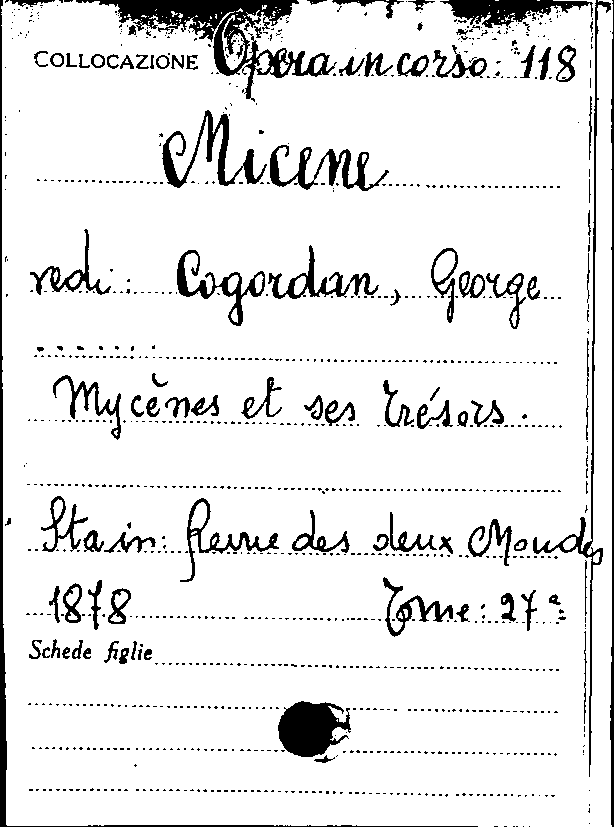 COLLOCAZIONE Opera in corso: 118
Micene
vedi: Cogordan, George
.......
Mycènes et ses trésors.
Sta in: Revue des deux Mondes
1878 Tome: 27ª
Schede figlie